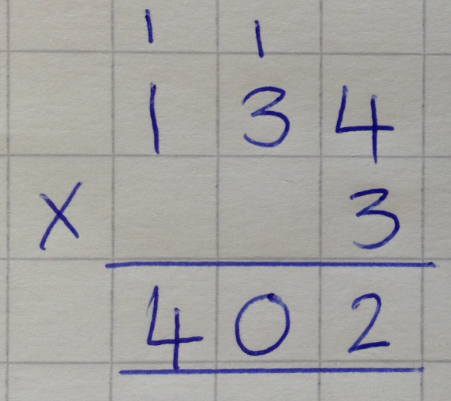 1 1
1 3 4
× 3
4 0 2